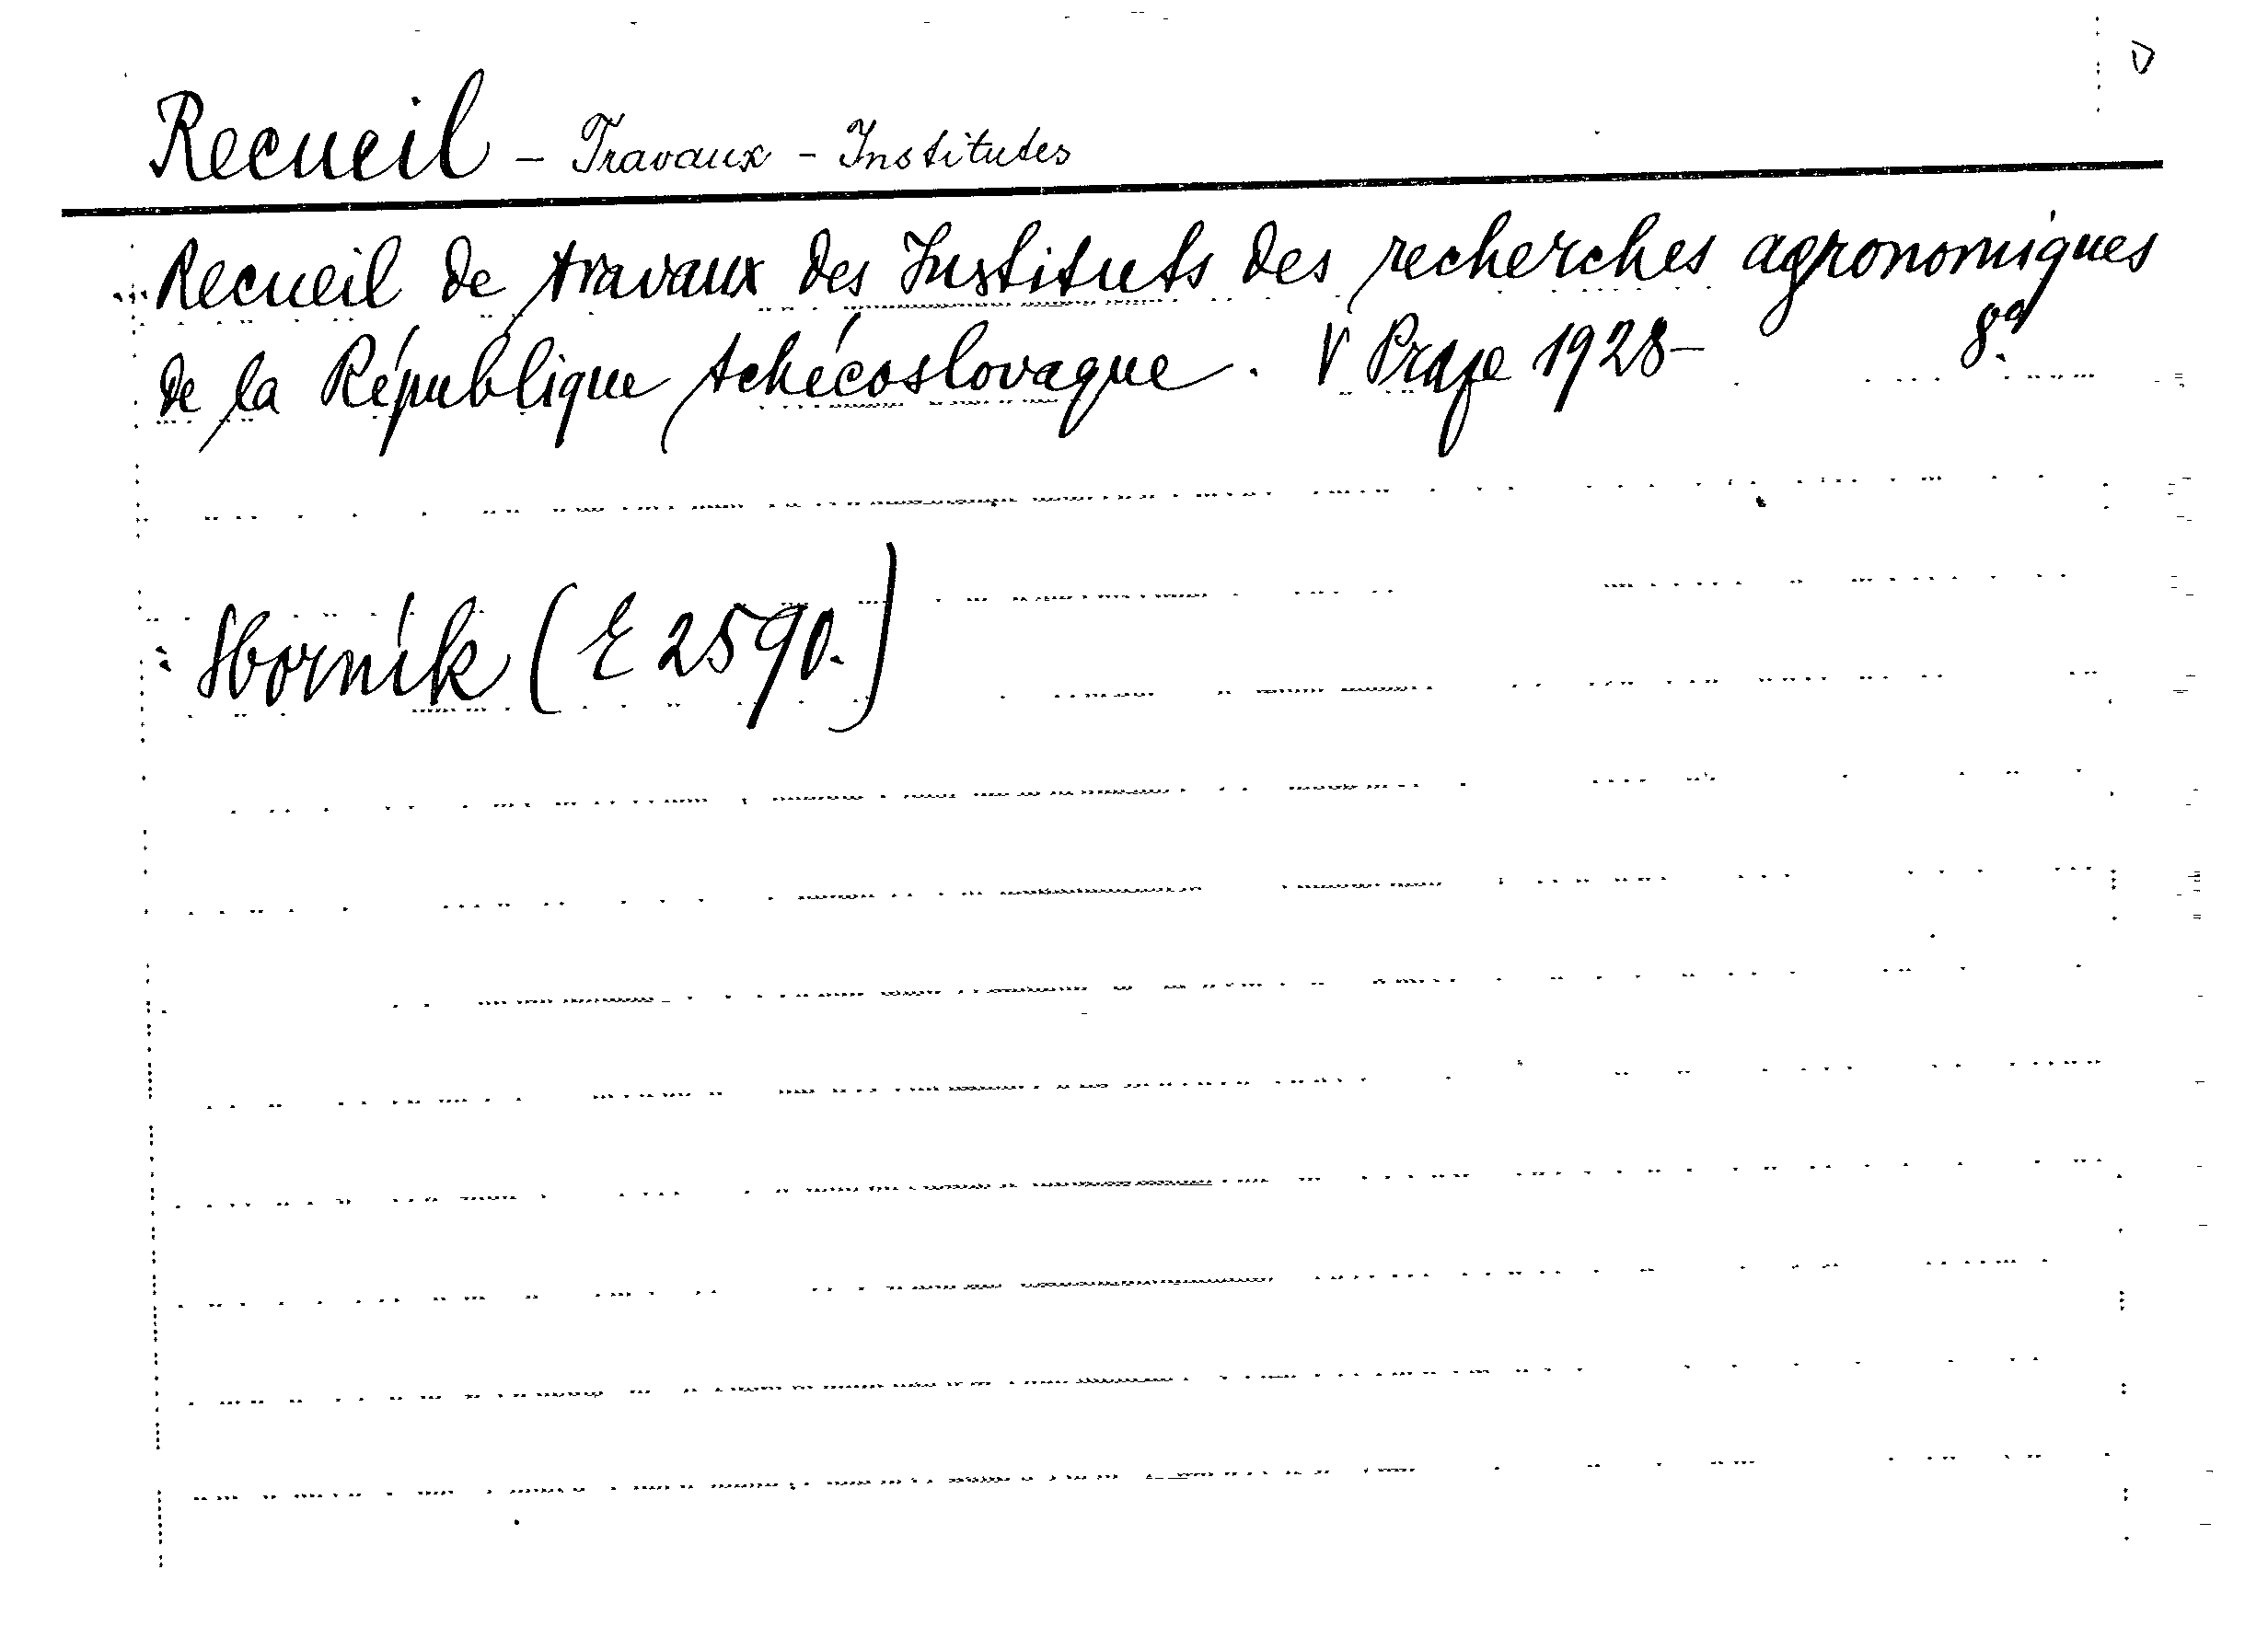 Recueil - Travaux - Institutes
Recueil de travaux des Instituts des recherches agronomiques
de la République tchécoslovaque. V Praze 1928- 8°.
Sborník (E 2590.)